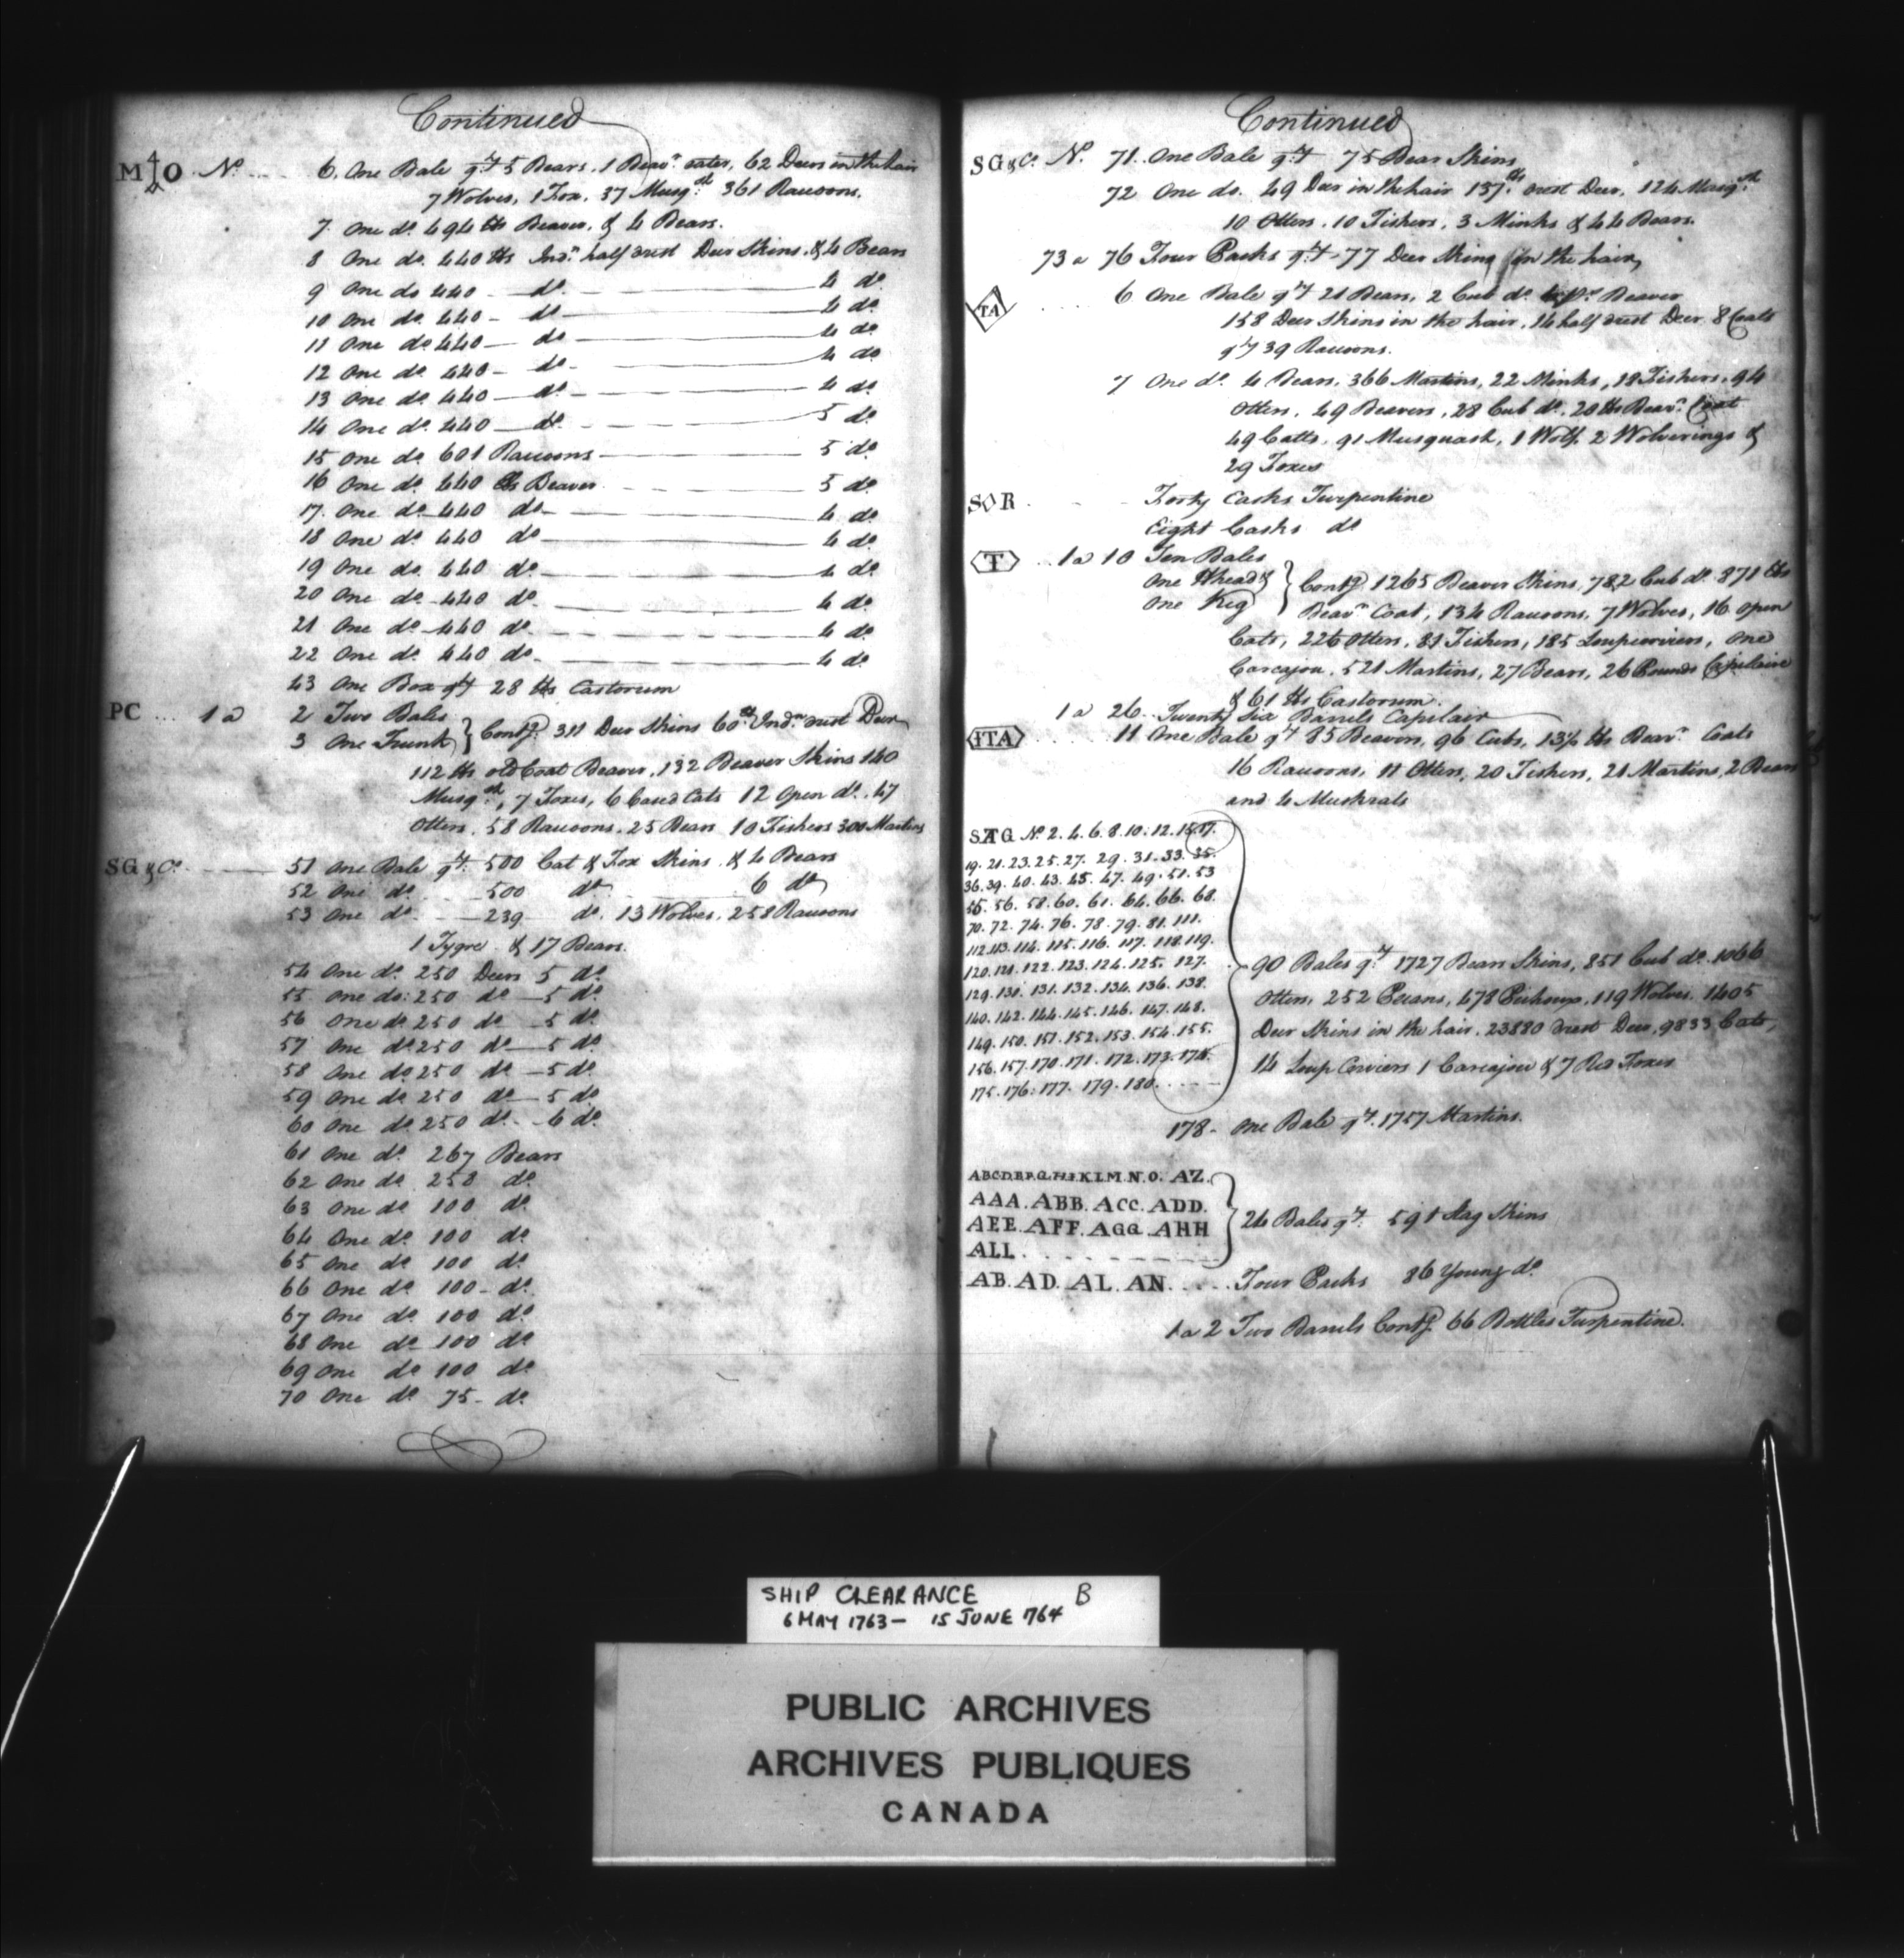 Continued
M O No. 6. One Bale qt. 5 Bears, 1 Beavr. eater, 62 Deers in the hair
7 Wolves, 1 Fox, 37 Musqsh. 361 Racoons.
7. One do. 494 lbs Beaver, & 4 Bears.
8 One do. 440 lbs Indn. half drest Deer Skins, & 4 Bears
9 One do 440 do. 4 do.
10 One do. 440 do 4 do.
11 One do. 440 do 4 do.
12 One do. 440 do. 4 do
13 One do. 440 do. 4 do.
14 One do. 440 do. 5 do.
15 One do. 601 Racoons 5 do.
16 One do. 440 lbs Beaver 5 do.
17. One do. 440 do. 4 do.
18 One do. 440 do 4 do.
19 One do. 440 do. 4 do.
20 One do. 440 do. 4 do.
21 One do. 440 do. 4 do.
22 One do. 440 do. 4 do.
43 One Box qt. 28 lbs Castorum
PC 1 a 2 Two Bales
3 One Trunk } Contg. 311 Deer Skins 60 Indn. drest Deer
112 lbs old Coat Beaver, 132 Beaver Skins 140
Musqsh., 7 Foxes, 6 Cased Cats 12 Open do. 47
Otters, 58 Racoons, 25 Bears 10 Fishers 300 Martins
SG & Co. 51 One Bale qt. 500 Cat & Fox Skins & 4 Bears
52 One do. 500 do 6 do
53 One do. 239 do. 13 Wolves, 258 Racoons
1 Tygre & 17 Bears.
54 One do. 250 Deers 5 do.
55 One do: 250 do 5 do.
56 One do. 250 do 5 do.
57 One do. 250 do 5 do.
58 One do. 250 do 5 do.
59 One do. 250 do 5 do.
60 One do. 250 do. 6 do.
61 One do. 267 Bears
62 One do. 258 do.
63 One do 100 do.
64 One do. 100 do.
65 One do 100 do.
66 One do. 100 do.
67 One do. 100 do.
68 One do 100 do.
69 One do 100 do.
70 One do. 75 do.
Continued
SG & Co. No. 71. One Bale qt. 75 Bear Skins
72 One do. 49 Deer in the hair 137 lbs. drest Deer, 124 Musqsh.
10 Otters, 10 Fishers, 3 Minks & 44 Bears.
73 a 76 Four Packs qt. 77 Deer Skins in the hair
TA 6 One Bale qt. 21 Bears, 2 Cub do. Beaver
158 Deer Skins in the hair, 14 half drest Deer 8 Coats
qt. 39 Racoons.
7 One do. 4 Bears, 366 Martins, 22 Minks, 18 Fishers, 94
Otters, 49 Beavers, 28 Cub do. 20 lbs Beavr. Coat
49 Catts, 91 Musquash, 1 Wolf, 2 Wolverings &
29 Foxes
S R Forty Casks Turpentine
Eight Casks do
T 1 a 10 Ten Bales
One Hhead &
One Keg } Contg. 1265 Beaver Skins, 782 Cub do. 871 lbs
Beavr. Coat, 134 Racoons, 7 Wolves, 16 open
Cats, 226 Otters, 81 Fishers, 185 Loupcerviers, One
Carcajou, 521 Martins, 27 Bears, 26 Pounds Capilaire
& 61 lbs Castorum.
1 a 26 Twenty Six Barrels Capilair
ITA 11 One Bale qt. 85 Beavers, 96 Cubs, 13½ lbs Beavr. Coats
16 Racoons, 11 Otters, 20 Fishers, 21 Martins, 2 Bears
and 4 Muskrats
SAG No. 2. 4. 6. 8. 10. 12. 15. 17.
19. 21. 23. 25. 27. 29. 31. 33. 35.
36. 39. 40. 43. 45. 47. 49. 51. 53
55. 56. 58. 60. 61. 64. 66. 68.
70. 72. 74. 76. 78. 79. 81. 111.
112. 113. 114. 115. 116. 117. 118. 119.
120. 121. 122. 123. 124. 125. 127.
129. 130. 131. 132. 134. 136. 138.
140. 142. 144. 145. 146. 147. 148.
149. 150. 151. 152. 153. 154. 155.
156. 157. 170. 171. 172. 173. 174.
175. 176. 177. 179. 180.
90 Bales qt. 1727 Bear Skins, 851 Cub do. 1066
Otters, 252 Pecans, 478 Pichoux, 119 Wolves, 1405
Deer Skins in the hair, 23880 drest Deer, 9833 Cats,
14 Loup Cerviers 1 Carcajou & 7 Red Foxes
178. One Bale qt. 1757 Martins.
ABCDEFGHIKLM.N.O. AZ.
AAA. ABB. ACC. ADD.
AEE. AFF. AGG. AHH
ALL.
24 Bales qt. 591 Stag Skins
AB. AD. AL. AN. Four Packs 86 Young do.
1 a 2 Two Barrels Contg. 66 Bottles Turpentine.
SHIP CLEARANCE B
6 MAY 1763 – 15 JUNE 1764
PUBLIC ARCHIVES
ARCHIVES PUBLIQUES
CANADA